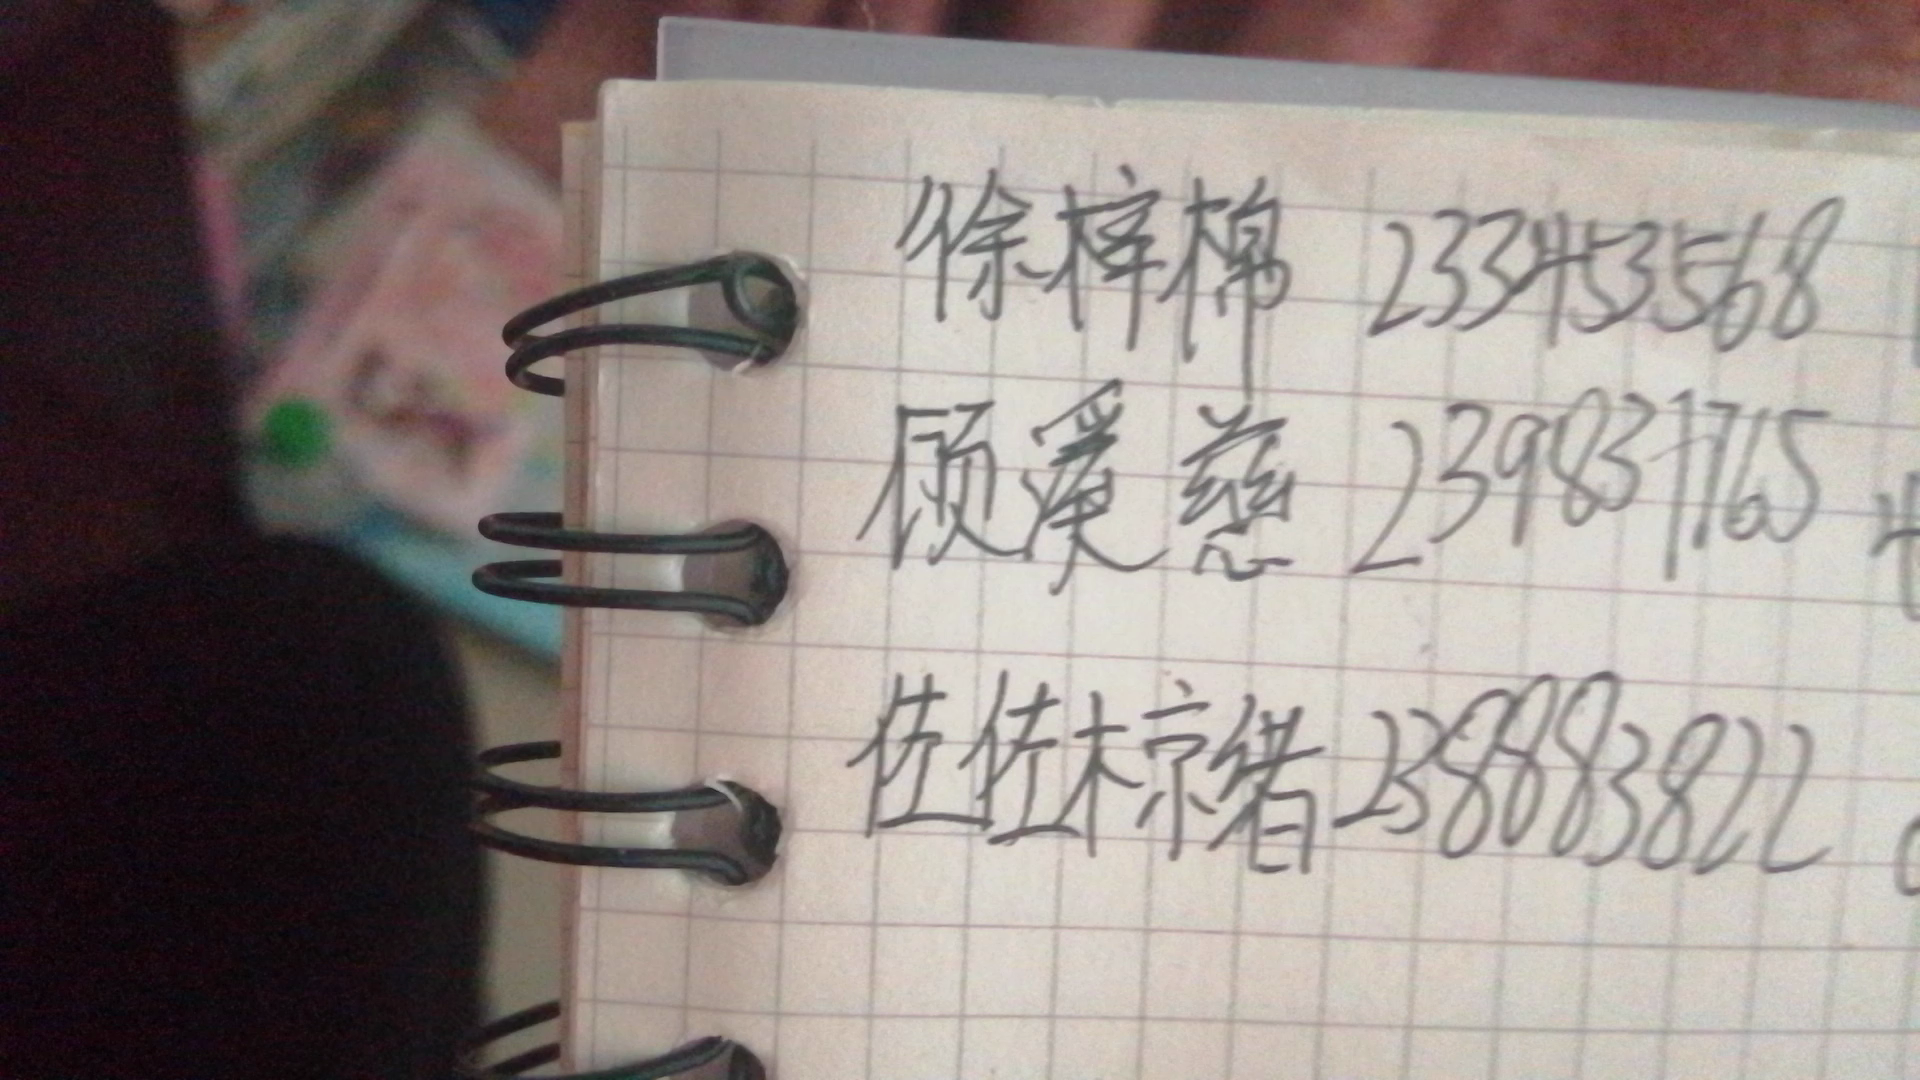 徐梓棉 233453568
顾溪慈 239837765
佐佐木椋绪 238883822